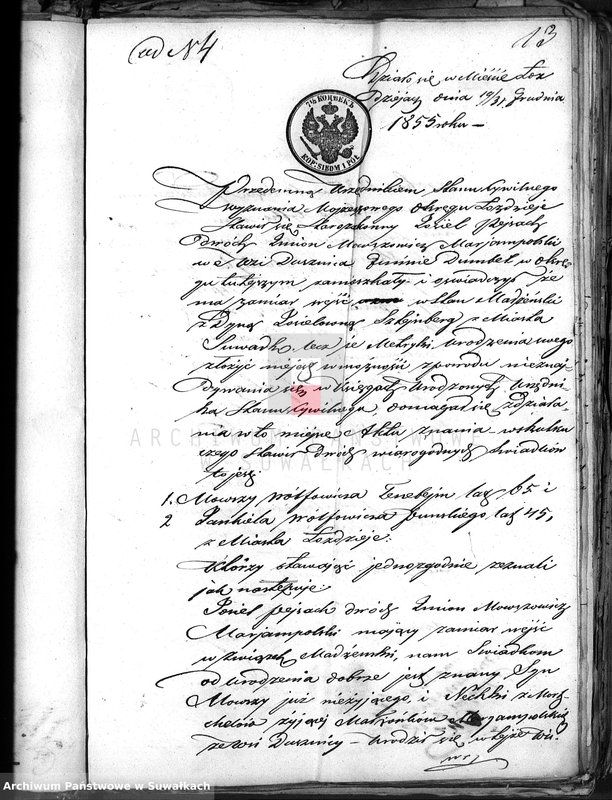 ad N 4
13
Działo się w Mieście Łoz
dziejach dnia 19/31 Grudnia
1855 roku —
7½ КОПѢЕКЪ
KOP. SIEDM I PÓŁ
Przedemną Urzędnikiem Stanu Cywilnego
wyznania Mojżeszowego Okręgu Łozdzieje
Stawił się Starozakonny Josiel Pejsach
dwóch Imion Mowszowicz Marjampolski
we Wsi Dusznica Gminie Dumbel w okrę
gu tutejszym zamieszkały i oświadczył że
ma zamiar wejść w stan Małżeński
z Dyną Josielowną Sztejnberg z Miasta
Suwałk, lecz że Metryki urodzenia swego
złożyć niejest w możności z powodu nieznaj
dywania się w Księgach Urodzonych Urzędni
ka Stanu Cywilnego, domagał się zdziała
nia w to miejsce Aktu Znania, wskutku
czego stawił dwóch wiarogodnych świadków
to jest
1. Mowszy Wolfowicza lat 65 i
2 Jankiela Wolfowicza Puńskiego lat 45,
z Miasta Łozdzieje.
Którzy stawając jednozgodnie zeznali
jak następuje:
Josiel Pejsach dwóch Imion Mowszowicz
Marjampolski mający zamiar wejść
w związek Małżeński, nam Świadkom
od urodzenia dobrze jest znany, Syn
Mowszy już nieżyjącego, i Nechki z Mord
chelów żyjącej Małżonków Marjampolskich
ze wsi Dusznicy — urodził się w tejże wsi
ARCHIWUM PAŃSTWOWE
W SUWAŁKACH
Archiwum Państwowe w Suwałkach